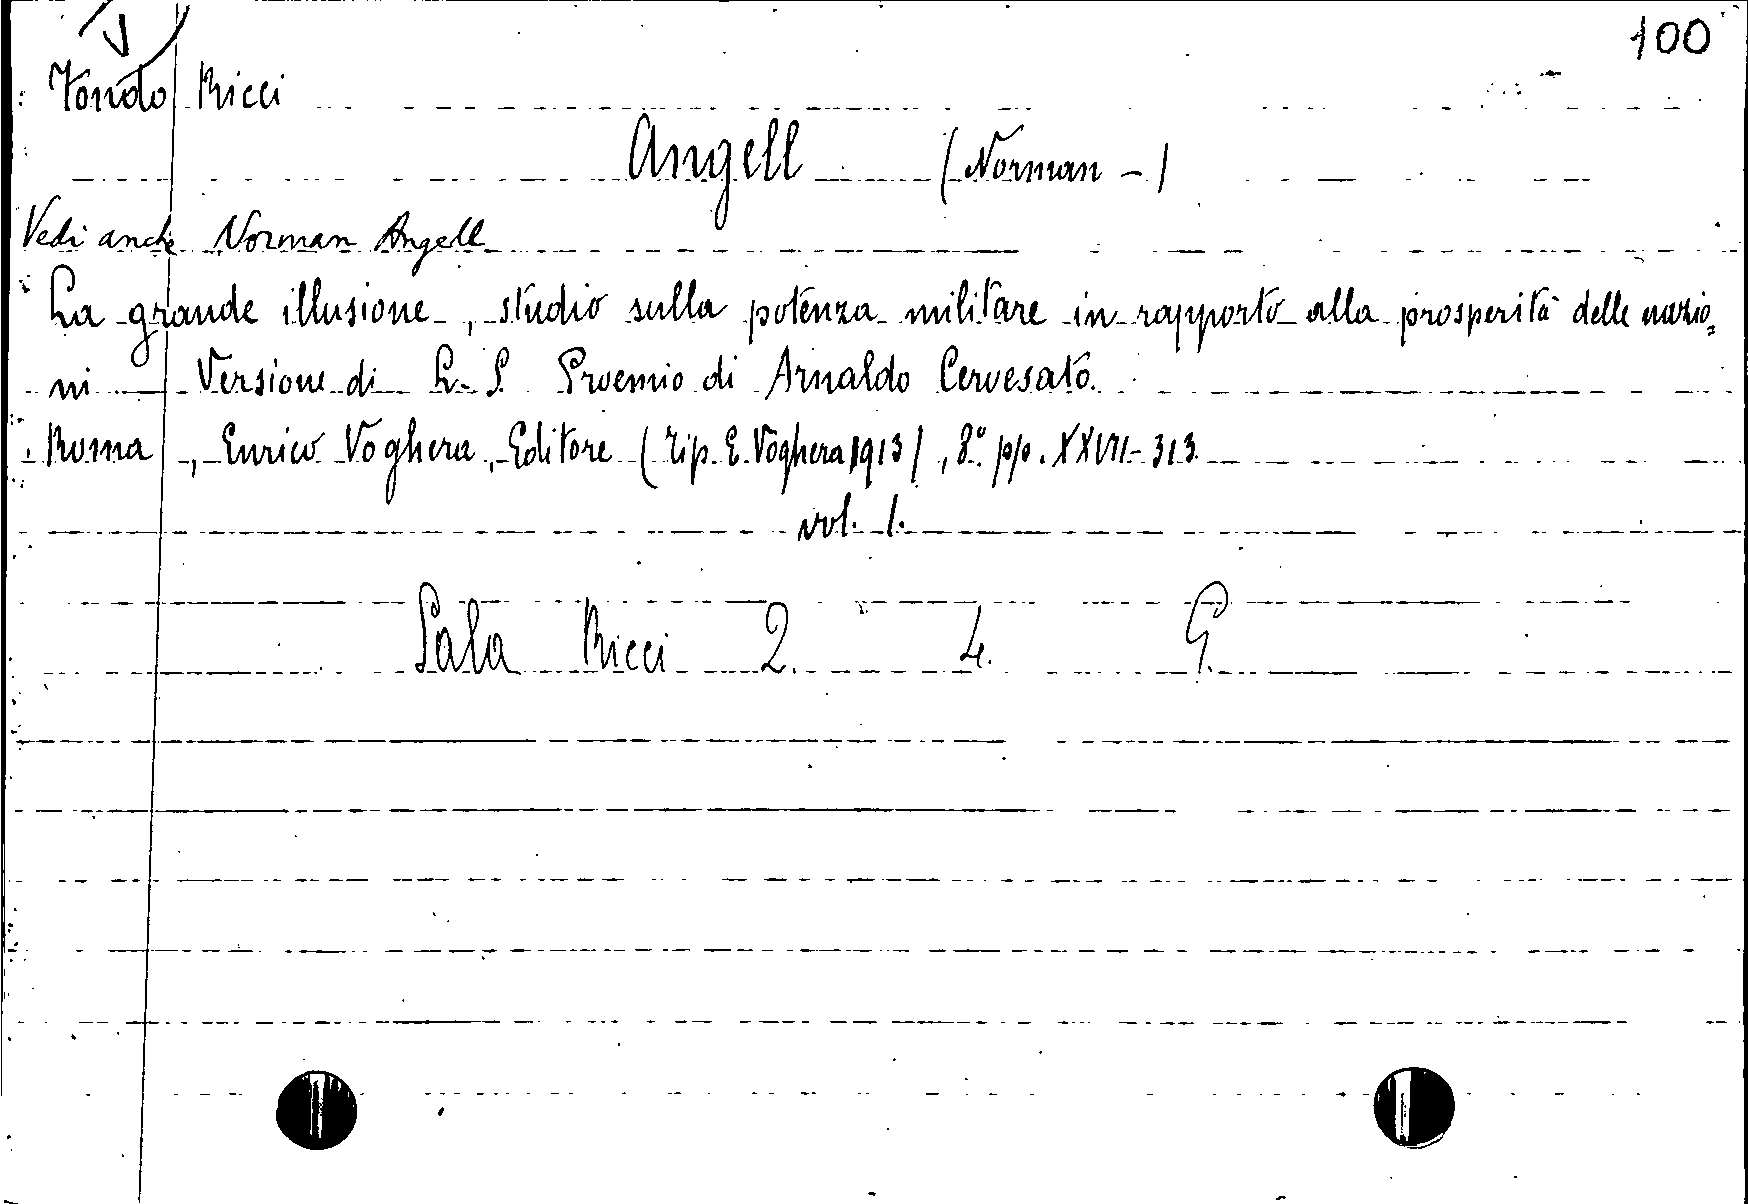 V
100
Fondo Ricci
Angell (Norman -)
Vedi anche Norman Angell
La grande illusione, studio sulla potenza militare in rapporto alla prosperità delle nazio=
ni Versione di L. P. Proemio di Arnaldo Cervesato.
Roma, Enrico Voghera, Editore (Tip. E. Voghera 1913), 8º. pp. XXVII-313
vol. 1.
Sala Ricci 2. 4. G.